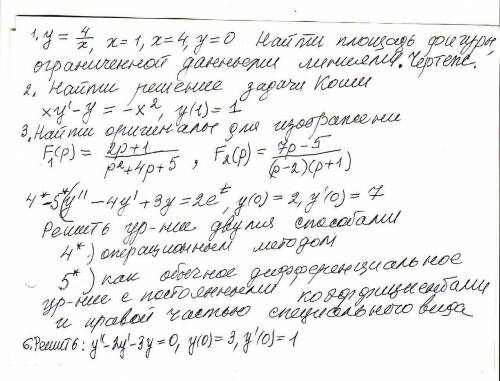 1. y = 4/x, x=1, x=4, y=0 Найти площадь фигуры,
ограниченной данными линиями. Чертеж.
2. Найти решение задачи Коши
xy' - y = -x², y(1) = 1
3. Найти оригиналы для изображений
F₁(p) = (2p+1)/(p²+4p+5), F₂(p) = (7p-5)/((p-2)(p+1))
4*-5* (y'' - 4y' + 3y = 2eᵗ, y(0) = 2, y'(0) = 7
Решить ур-ние двумя способами
4*) операционным методом
5*) как обычное дифференциальное
ур-ние с постоянными коэффициентами
и правой частью специального вида
6. Решить: y'' - 2y' - 3y = 0, y(0) = 3, y'(0) = 1